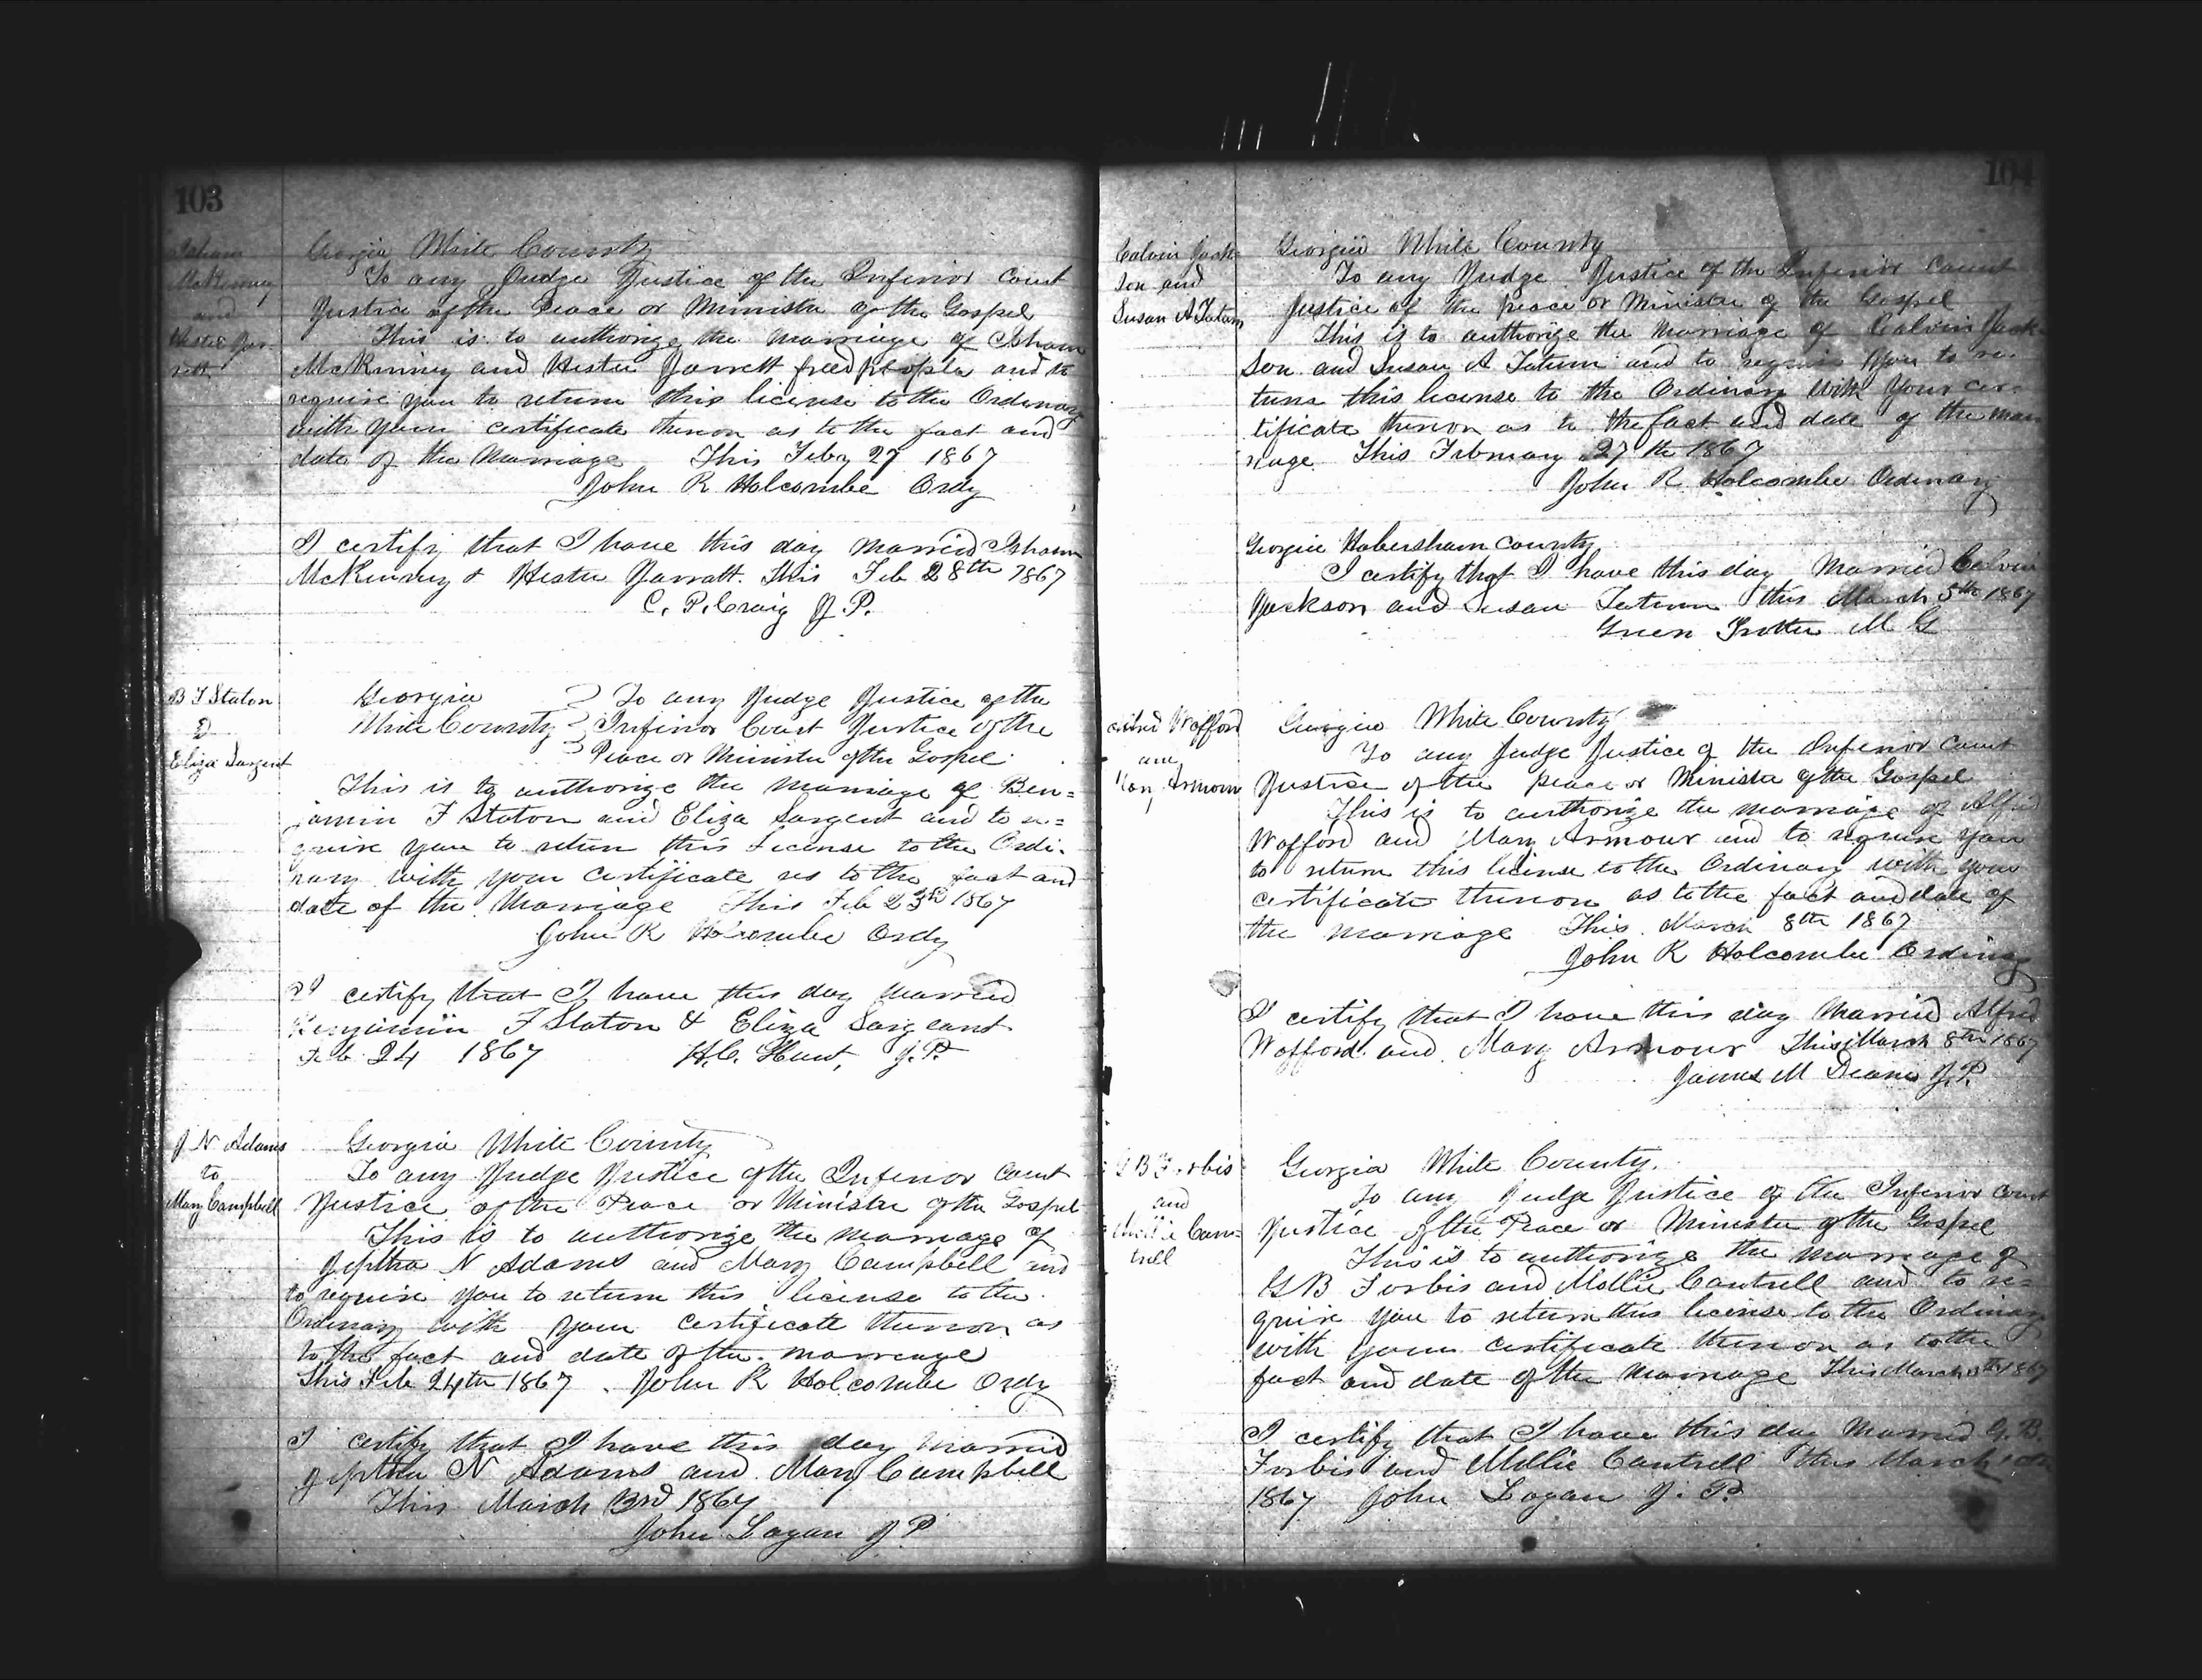 103
Isham
McKinney
and
Hester Jar-
rett
Georgia White County
To any Judge Justice of the Inferior Court
Justice of the Peace or Minister of the Gospel
This is to authorize the marriage of Isham
McKinney and Hester Jarrett freed people and to
require you to return this license to the Ordinary
with your certificate thereon as to the fact and
date of the Marriage This Feby 27 1867
John R Holcombe Ordy
I certify that I have this day Married Isham
McKinney & Hester Jarratt. This Feb 28th 1867
C. P. Craig J. P.
B F Staton
&
Eliza Sargent
Georgia To any Judge Justice of the
White County Inferior Court Justice of the
Peace or Minister of the Gospel
This is to authorize the Marriage of Ben=
jamin F Staton and Eliza Sargent and to re=
quire you to return this License to the Ordi-
nary with your certificate as to the fact and
date of the Marriage This Feb 23rd 1867
John R Holcombe Ordy
I certify that I have this day married
Benjamin F Staton & Eliza Sargeant
Feb 24 1867 H.C. Hunt, J. P.
J N Adams
to
Mary Campbell
Georgia White County
To any Judge Justice of the Inferior Court
Justice of the Peace or Minister of the Gospel
This is to authorize the marriage of
Jeptha N Adams and Mary Campbell and
to require you to return this license to the
Ordinary with your certificate thereon as
to the fact and date of the marriage
This Feb 24th 1867. John R Holcombe Ordy
I certify that I have this day married
Jeptha N Adams and Mary Campbell
This March 3rd 1867
John Logan J P
104
Calvin Jack-
son and
Susan A Tatum
Georgia White County
To any Judge Justice of the Inferior Court
Justice of the peace or Minister of the Gospel
This is to authorize the Marriage of Calvin Jack-
son and Susan A Tatum and to require you to re-
turn this license to the Ordinary with your cer-
tificate thereon as to the fact and date of the mar
riage This February 27th 1867
John R Holcombe Ordinary
Georgia Habersham County
I certify that I have this day Married Calvin
Jackson and Susan Tatum this March 5th 1867
Green Trotter M G
Wofford
and
Armour
Georgia White County
To any Judge Justice of the Inferior Court
Justice of the peace or Minister of the Gospel
This is to authorize the marriage of Alfred
Wofford and Mary Armour and to require you
to return this license to the Ordinary with your
certificate thereon as to the fact and date of
the marriage This March 8th 1867
John R Holcombe Ordinary
I certify that I have this day Married Alfred
Wofford and Mary Armour This March 8th 1867
James M Deane J. P.
G B Forbis
and
Mollie Can=
trell
Georgia White County.
To any Judge Justice of the Inferior Court
Justice of the Peace or Minister of the Gospel
This is to authorize the marriage of
G B Forbis and Mollie Cantrell and to re=
quire you to return this license to the Ordinary
with your certificate thereon as to the
fact and date of the Marriage This March 1867
I certify that I have this day Married G. B.
Forbis and Mollie Cantrell this March
1867 John Logan J. P.